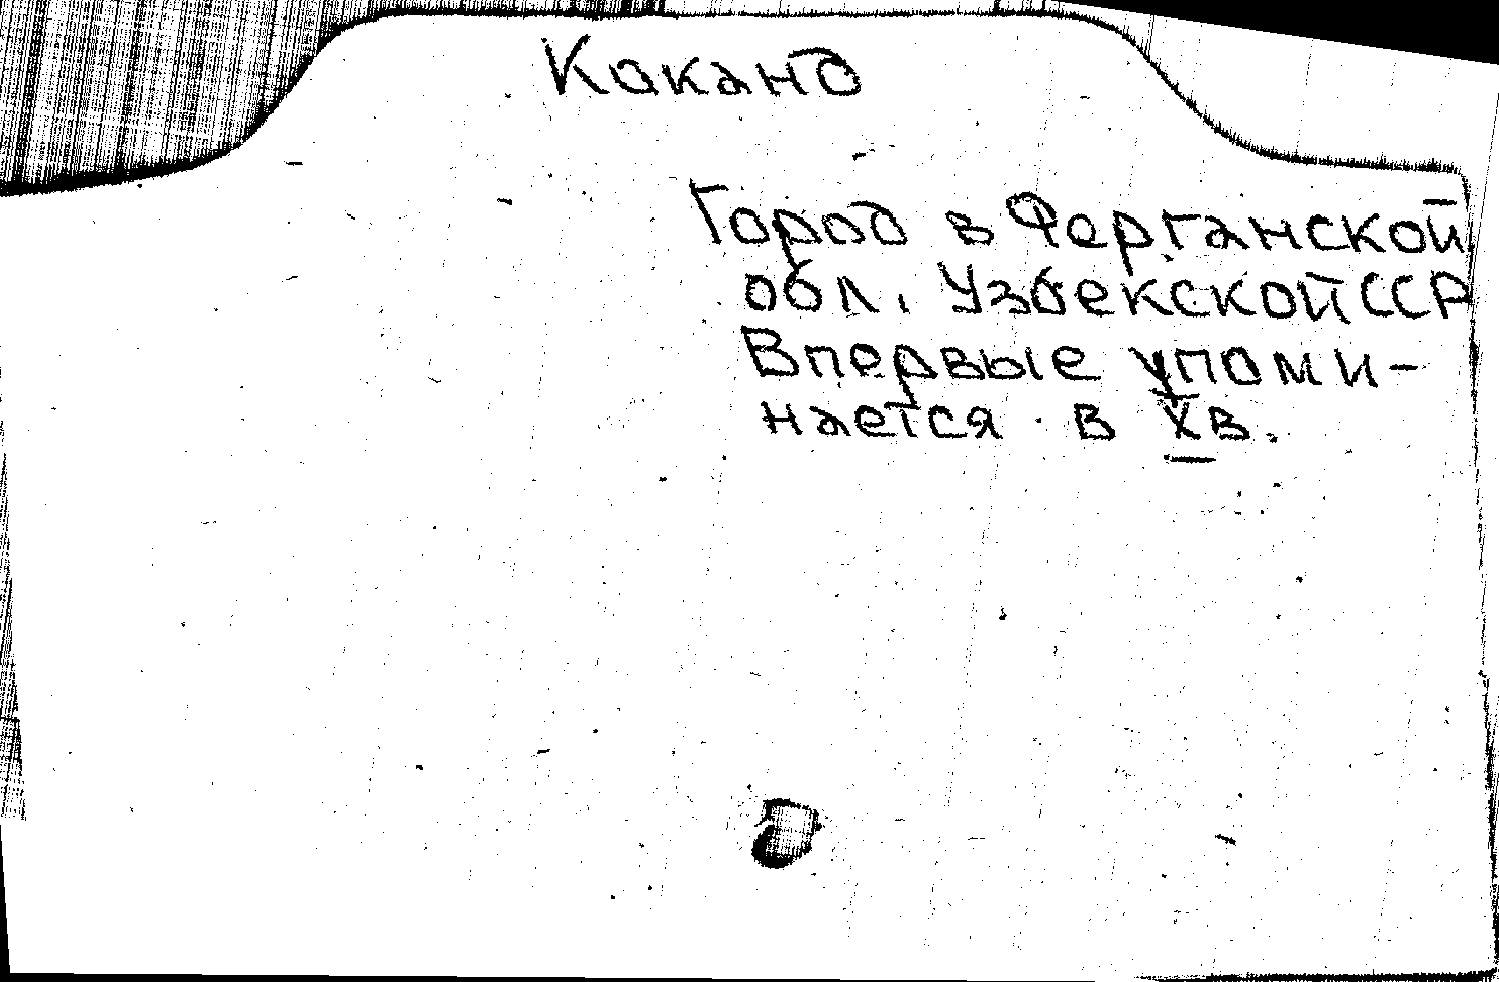 Коканд
Город в Ферганской
обл. Узбекской ССР
Впервые упоми-
нается в X в.